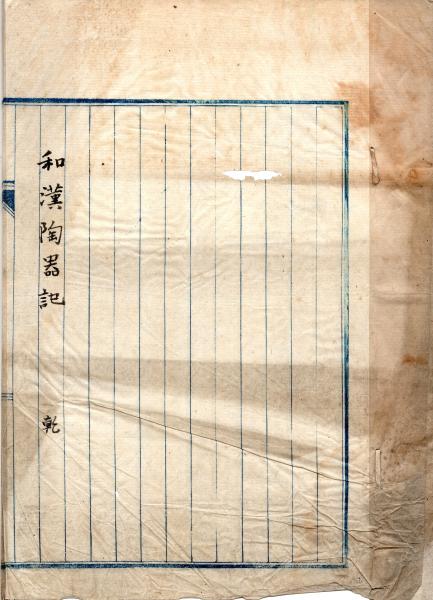 和漢陶器記　乾